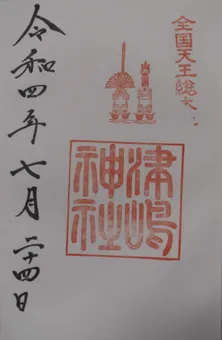 全国天王総本社
津嶋
神社
令和四年七月二十四日